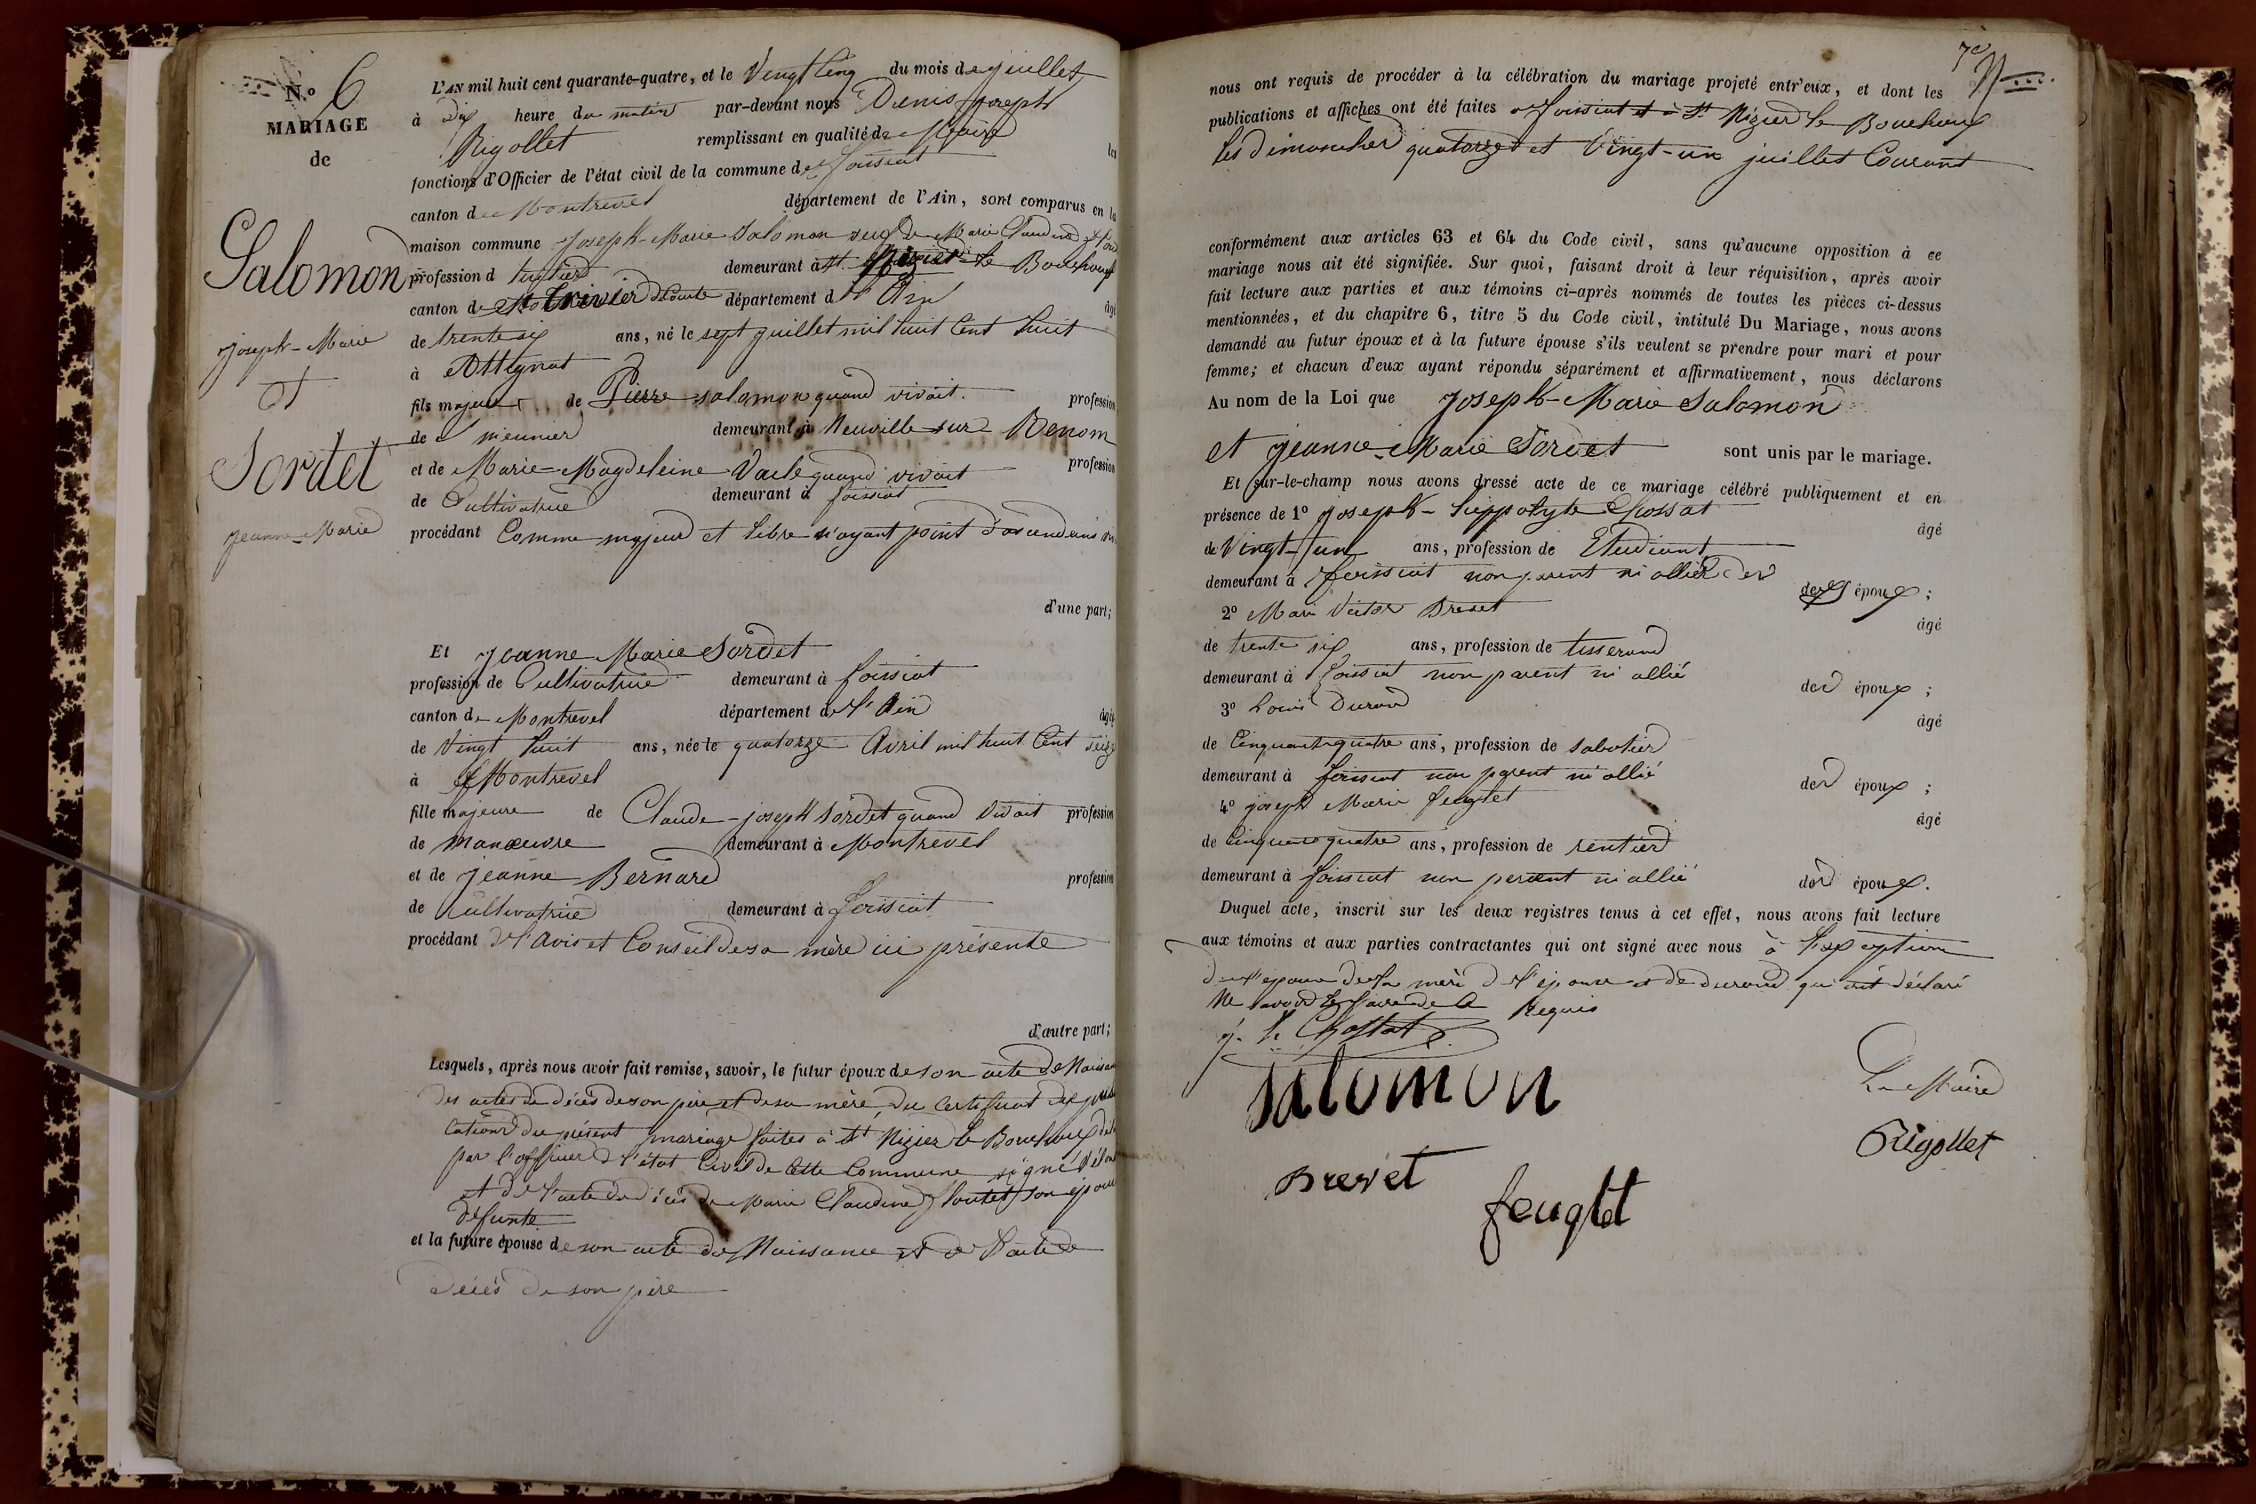 N.º 6
MARIAGE
de
Salomon
joseph-Marie
et
Sordet
jeanne-Marie
L'AN mil huit cent quarante-quatre, et le Vingt Cinq du mois de juillet
à Dix heure du matin par-devant nous Denis joseph
Rigollet remplissant en qualité de Maire les
fonctions d'Officier de l'état civil de la commune de foissiat
canton de Montrevel département de l'Ain, sont comparus en la
maison commune joseph-Marie Salomon veuf de Marie Claudine
profession d demeurant à St Nizier le Bouchoux
canton de St Trivier de Courte département de l'Ain âgé
de trente six ans, né le sept juillet mil huit Cent huit
à Attignat
fils majeur de Pierre salomon quand vivait profession
de meunier demeurant à Neuville sur Renom
et de Marie-Magdeleine quand vivait profession
de Cultivatrice demeurant à foissiat
procédant Comme majeur et libre n'ayant point d'ascendans
d'une part;
Et jeanne Marie Sordet
profession de Cultivatrice demeurant à foissiat
canton de Montrevel département de l'Ain âgée
de Vingt huit ans, née le quatorze Avril mil huit Cent seize
à Montrevel
fille majeure de Claude-joseph Sordet quand vivait profession
de manœuvre demeurant à Montrevel
et de jeanne Bernard profession
de Cultivatrice demeurant à foissiat
procédant de l'avis et Conseil de sa mère ici présente
d'autre part;
Lesquels, après nous avoir fait remise, savoir, le futur époux de son acte de Naissance
des actes de décès de son père et de sa mère, du Certificat des publi
cations du présent mariage faites à St Nizier le Bouchoux
par l'officier de l'état Civil de Cette Commune signé
et de l'acte de décès de Marie Claudine son épouse
défunte
et la future épouse de son acte de Naissance et de l'acte de
décès de son père
7e
nous ont requis de procéder à la célébration du mariage projeté entr'eux, et dont les
publications et affiches ont été faites à foissiat et à St Nizier le Bouchoux
les dimanches quatorze et Vingt-un juillet Courant
conformément aux articles 63 et 64 du Code civil, sans qu'aucune opposition à ce
mariage nous ait été signifiée. Sur quoi, faisant droit à leur réquisition, après avoir
fait lecture aux parties et aux témoins ci-après nommés de toutes les pièces ci-dessus
mentionnées, et du chapitre 6, titre 5 du Code civil, intitulé Du Mariage, nous avons
demandé au futur époux et à la future épouse s'ils veulent se prendre pour mari et pour
femme; et chacun d'eux ayant répondu séparément et affirmativement, nous déclarons
Au nom de la Loi que joseph-Marie Salomon
et jeanne-Marie Sordet sont unis par le mariage.
Et sur-le-champ nous avons dressé acte de ce mariage célébré publiquement et en
présence de 1º joseph-hippolyte Chossat âgé
de Vingt-un ans, profession de Etudiant
demeurant à foissiat non parent ni allié des des époux;
2º Marie Victor Brevet âgé
de trente six ans, profession de tisserand
demeurant à foissiat non parent ni allié des époux;
3º Louis Durand âgé
de Cinquante quatre ans, profession de sabotier
demeurant à foissiat non parent ni allié des époux;
4º joseph Marie feuglet âgé
de Cinquante quatre ans, profession de rentier
demeurant à foissiat non parent ni allié des époux.
Duquel acte, inscrit sur les deux registres tenus à cet effet, nous avons fait lecture
aux témoins et aux parties contractantes qui ont signé avec nous à l'exception
de l'épouse de la mère de l'épouse et de durand qui ont déclaré
Ne savoir le faire de ce Requis
j. h. Chossat
Salomon
Le Maire
Rigollet
Brevet
feuglet